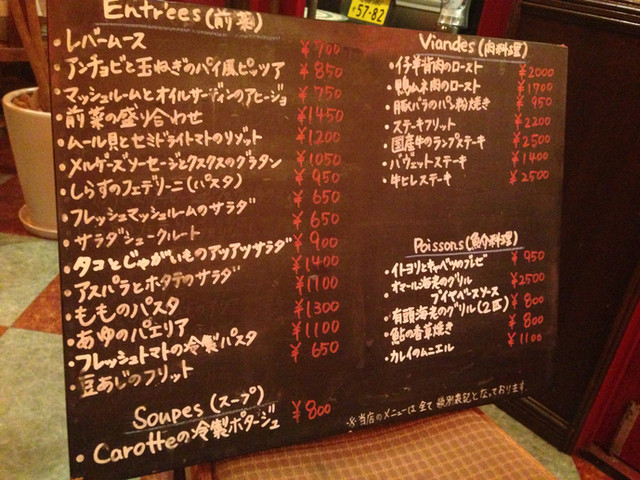 57-82
Entrées (前菜)
レバームース ¥700
アンチョビと玉ねぎのパイ風ピッツァ ¥850
マッシュルームとオイルサーディンのアヒージョ ¥750
前菜の盛り合わせ ¥1450
ムール貝とセミドライトマトのリゾット ¥1200
メルゲーズソーセージとクスクスのグラタン ¥1050
しらすのフェデリーニ(パスタ) ¥950
フレッシュマッシュルームのサラダ ¥650
サラダシュークルート ¥650
タコとじゃがいものアツアツサラダ ¥900
アスパラとホタテのサラダ ¥1400
もものパスタ ¥1700
あゆのパエリア ¥1300
フレッシュトマトの冷製パスタ ¥1100
豆あじのフリット ¥650
Soupes (スープ)
Carotteの冷製ポタージュ ¥800
Viandes (肉料理)
イチ羊背肉のロースト ¥2000
鴨ムネ肉のロースト ¥1700
豚バラのパン粉焼き ¥950
ステーキフリット ¥2200
国産牛のランプステーキ ¥2500
バヴェットステーキ ¥1400
牛ヒレステーキ ¥2500
Poissons (魚介料理)
イトヨリとキャベツのブレゼ ¥950
オマール海老のグリル ¥2500
ブイヤベースソース
有頭海老のグリル(2匹) ¥800
鮎の香草焼き ¥800
カレイのムニエル ¥1100
※当店のメニューは全て税別表記となっております